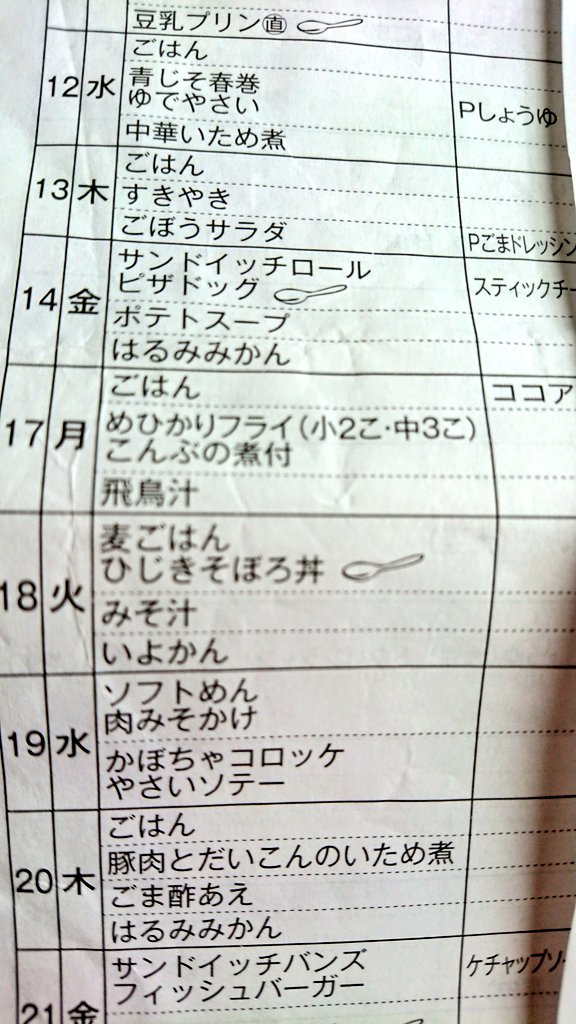 豆乳プリン㊟
12 水 ごはん
青じそ春巻
ゆでやさい Pしょうゆ
中華いため煮
13 木 ごはん
すきやき
ごぼうサラダ Pごまドレッシン
14 金 サンドイッチロール
ピザドッグ スティックチー
ポテトスープ
はるみみかん
17 月 ごはん ココア
めひかりフライ(小2こ・中3こ)
こんぶの煮付
飛鳥汁
18 火 麦ごはん
ひじきそぼろ丼
みそ汁
いよかん
19 水 ソフトめん
肉みそかけ
かぼちゃコロッケ
やさいソテー
20 木 ごはん
豚肉とだいこんのいため煮
ごま酢あえ
はるみみかん
21 金 サンドイッチバンズ ケチャップソ
フィッシュバーガー